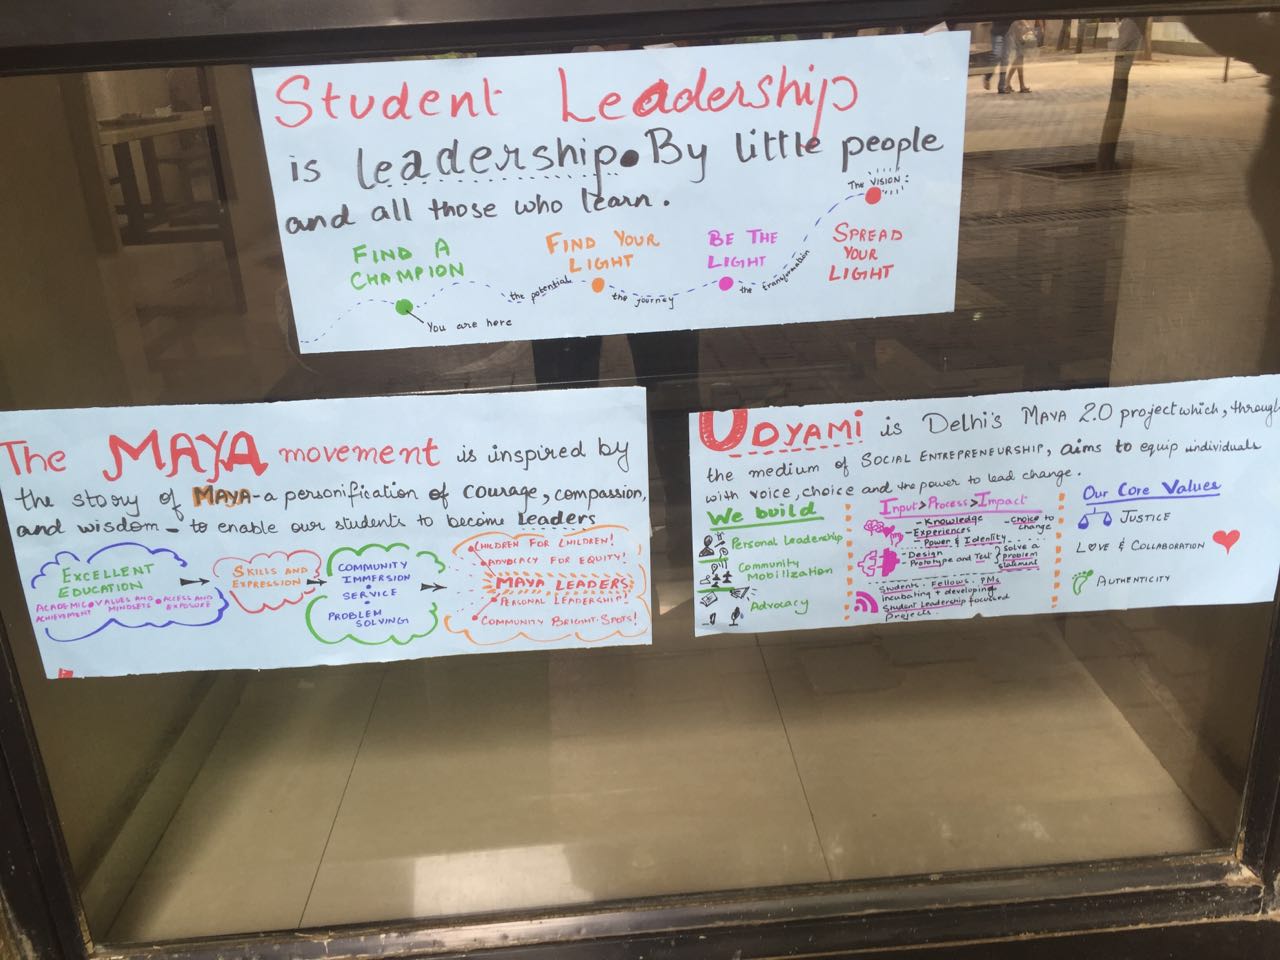 Student Leadership
is leadership. By little people
and all those who learn.
The VISION:
FIND A
CHAMPION
FIND YOUR
LIGHT
BE THE
LIGHT
SPREAD
YOUR
LIGHT
You are here
the potential
the journey
the transformation
The MAYA movement is inspired by
the story of MAYA - a personification of courage, compassion,
and wisdom - to enable our students to become leaders
EXCELLENT
EDUCATION
ACADEMIC • VALUES AND • ACCESS AND
ACHIEVEMENT MINDSETS EXPOSURE
SKILLS AND
EXPRESSION
COMMUNITY
IMMERSION
•
SERVICE
•
PROBLEM
SOLVING!
• CHILDREN FOR CHILDREN!
• ADVOCACY FOR EQUITY!
MAYA LEADERS
• PERSONAL LEADERSHIP!
• COMMUNITY BRIGHT-SPOTS!
UDYAMI is Delhi's MAYA 2.0 project which, through
the medium of SOCIAL ENTREPRENEURSHIP, aims to equip individuals
with voice, choice and the power to lead change.
We build
Personal Leadership
Community
Mobilization
Advocacy
Input > Process > Impact
- Knowledge
- Experiences
- choice to
change
Power & Identity
- Design
Prototype and Test
solve a
problem
statement
Students. Fellows. PMs
incubating + developing
Student Leadership focused
projects.
Our Core Values
JUSTICE
LOVE & COLLABORATION
AUTHENTICITY